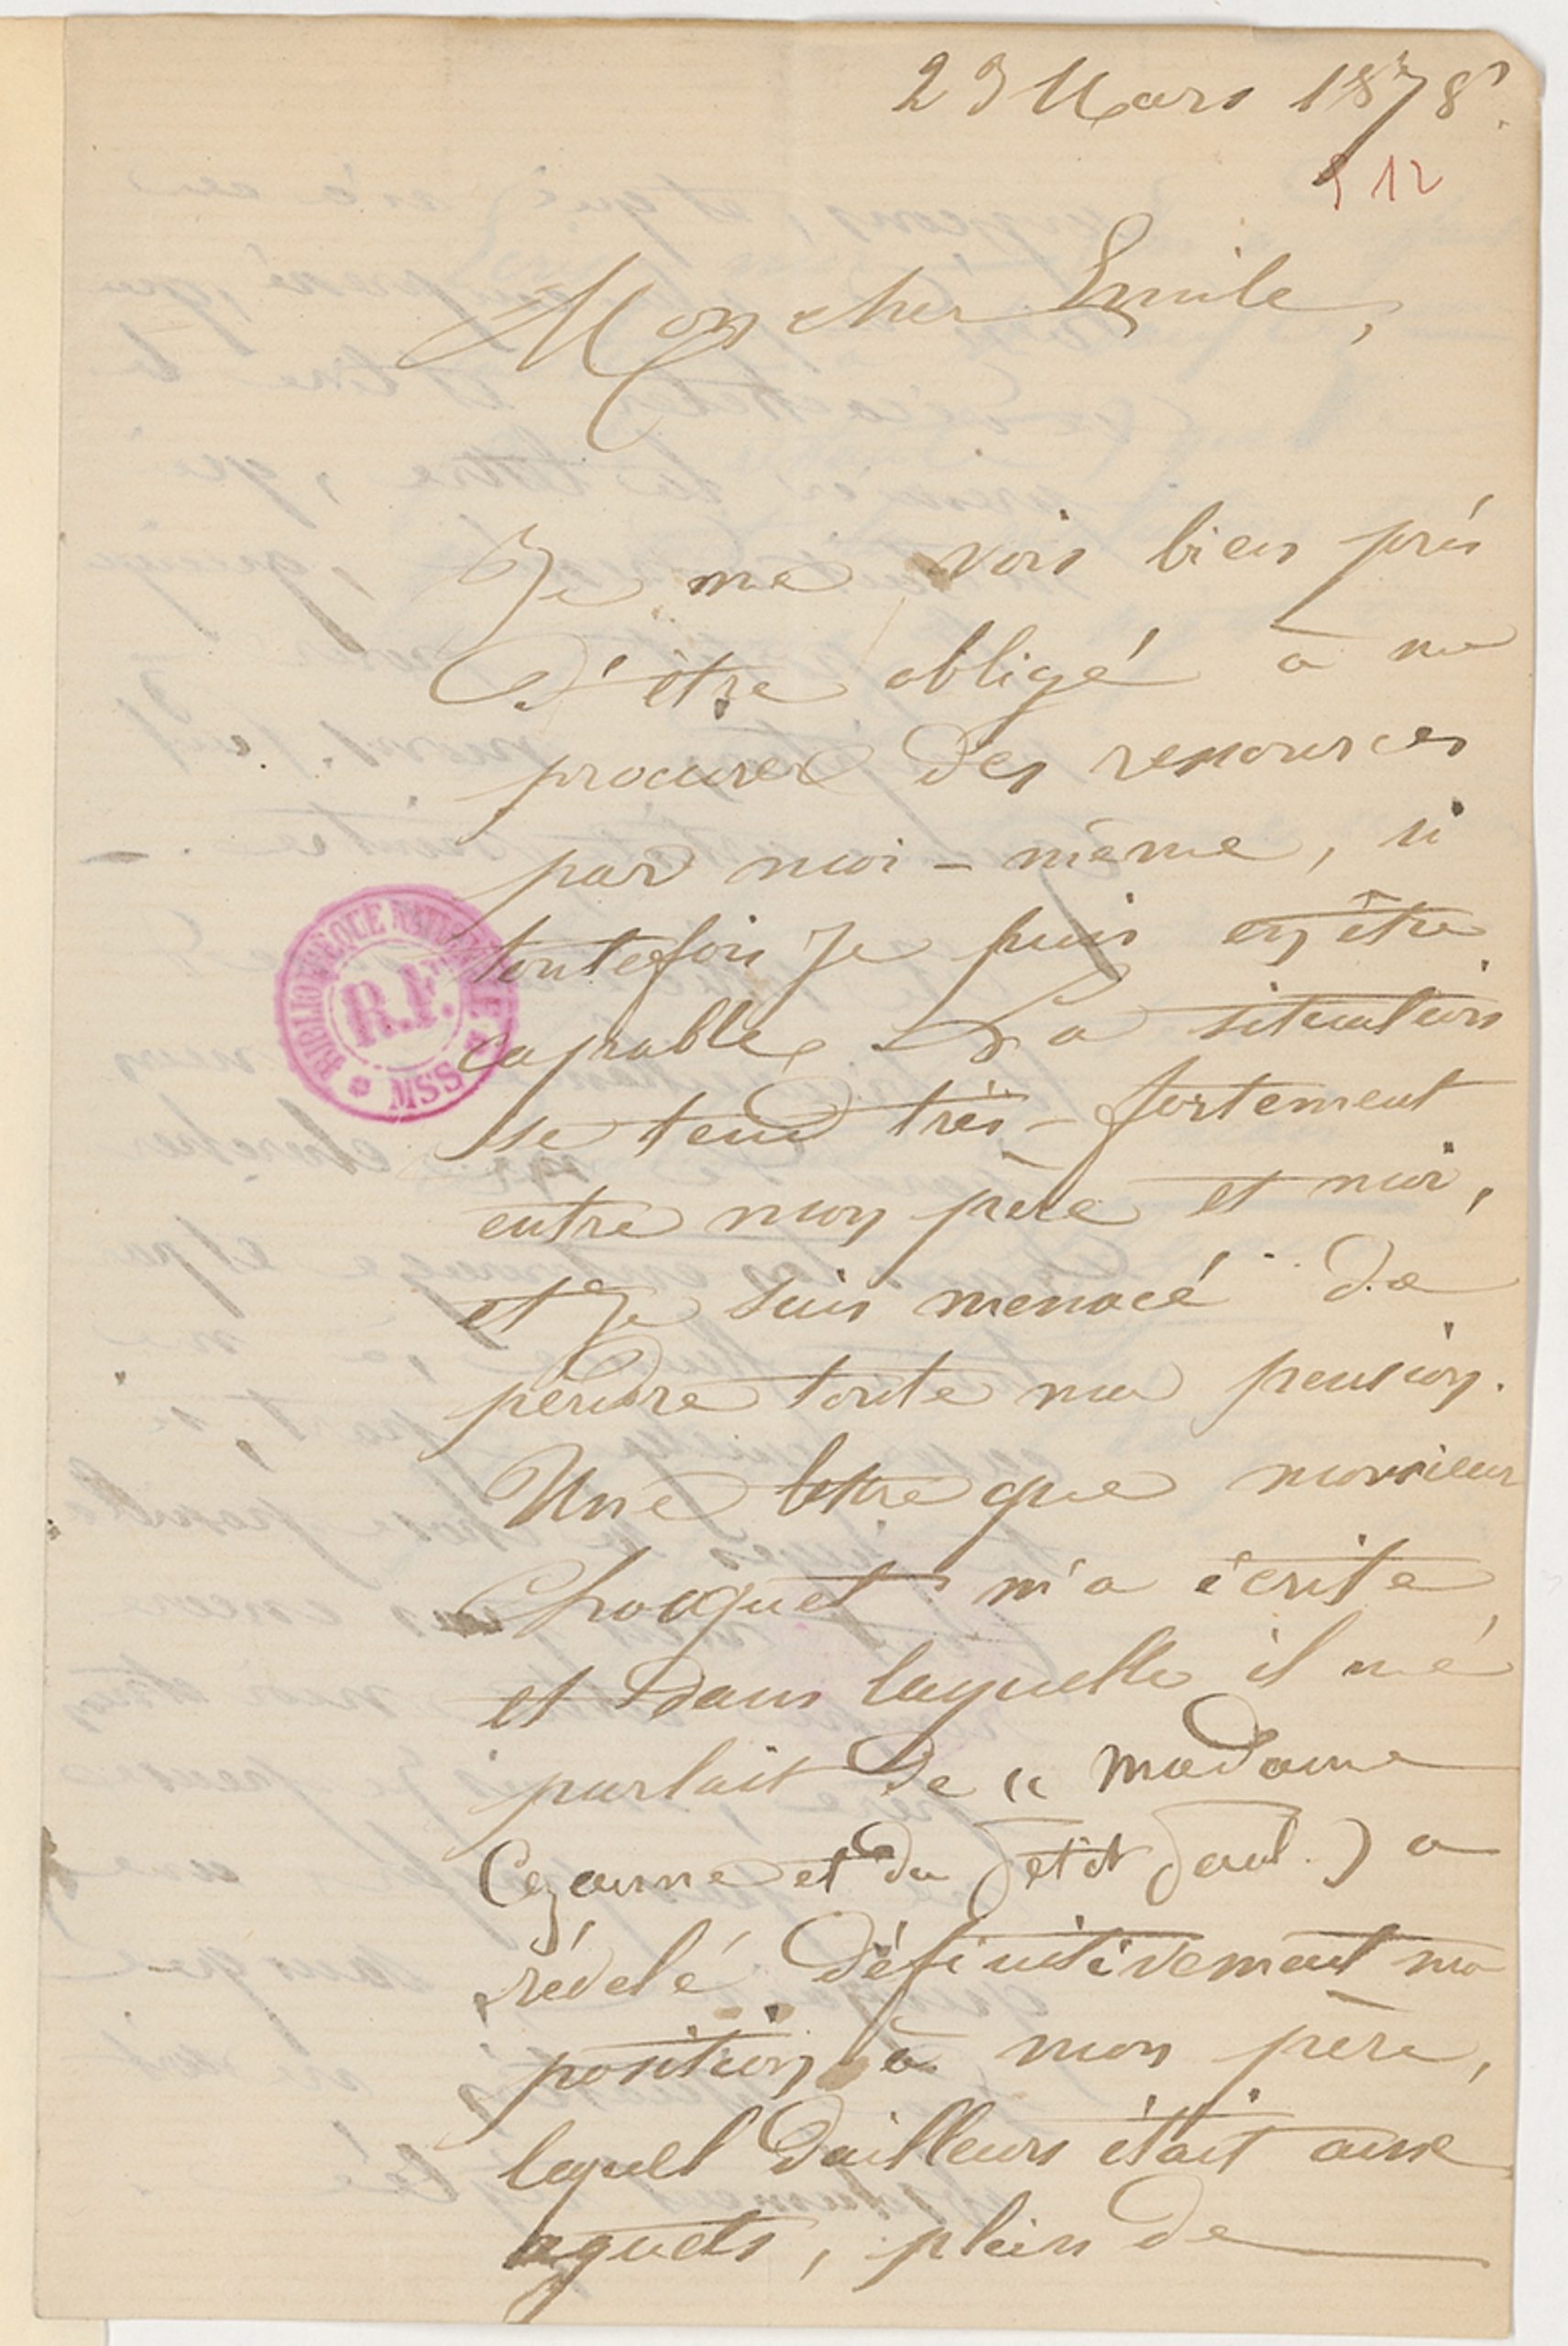 23 Mars 1878.
312
Mon cher Emile,
Je me vois bien près
d'être obligé à me
procurer des ressources
par moi-même, si
toutefois je puis en être
capable. La situation
se tend très-fortement
entre mon père et moi,
et je suis menacé de
perdre toute ma pension.
Une lettre que monsieur
Choquet m'a écrite,
et dans laquelle il me
parlait de « Madame
Cezanne et du petit Paul.) a
révélé définitivement ma
position à mon père,
lequel d'ailleurs était aux
aguets, plein de
BIBLIOTHEQUE NATIONALE
R.F.
MSS